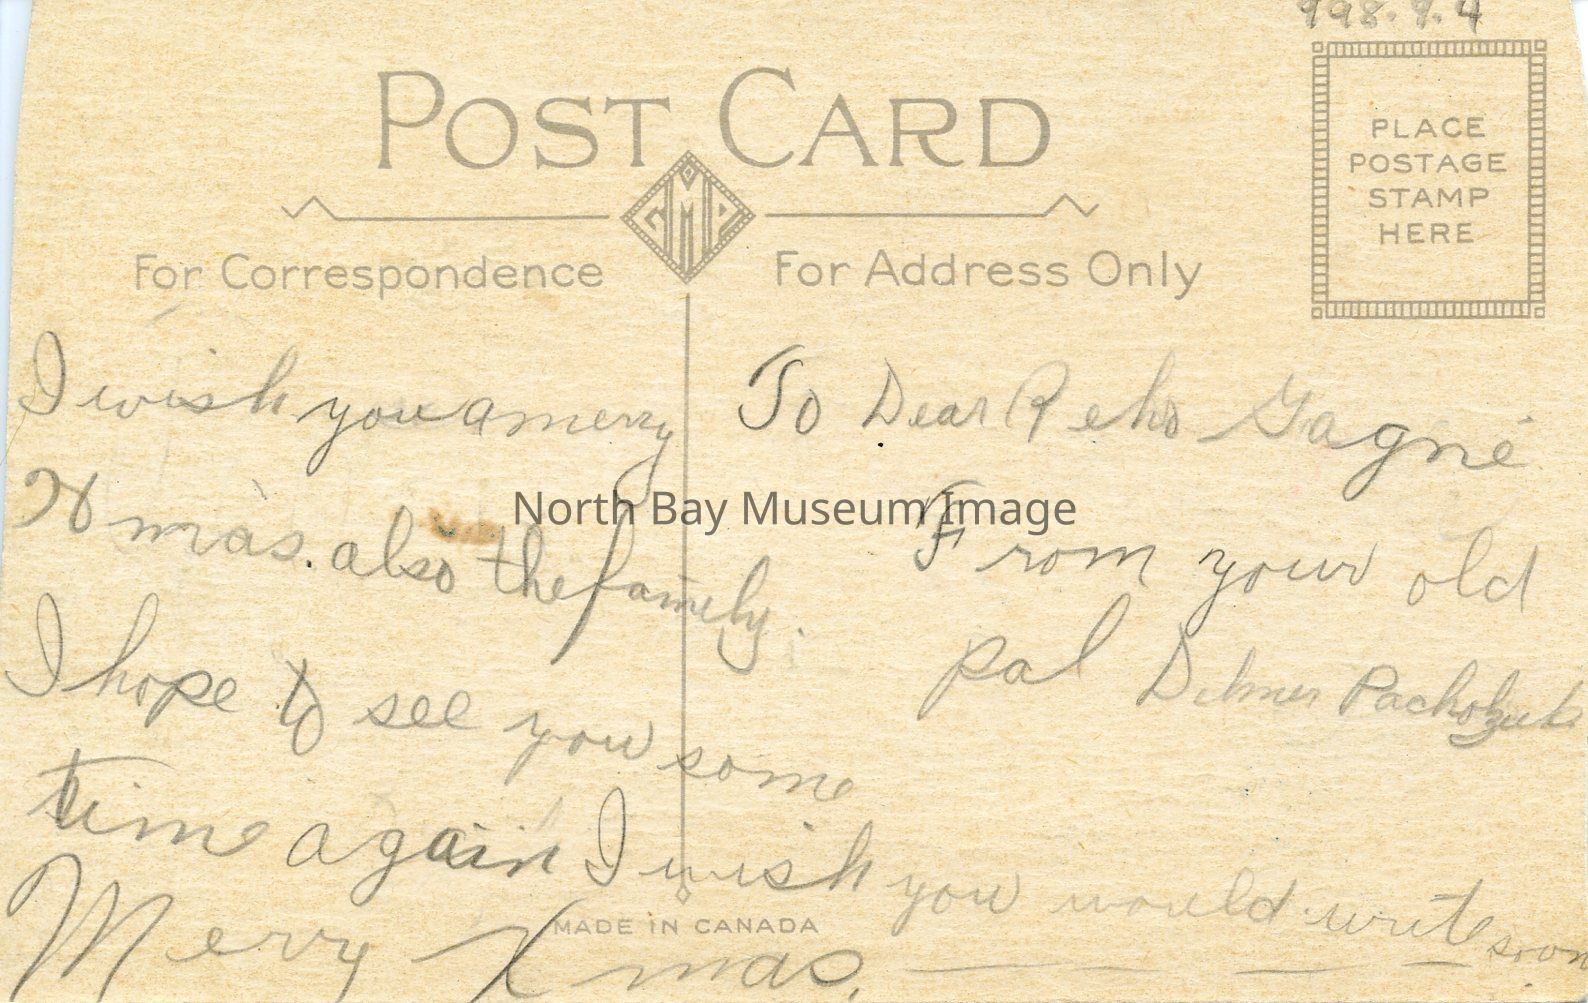 998.9.4
POST CARD
PLACE
POSTAGE
STAMP
HERE
CMP
For Correspondence
For Address Only
I wish you a merry
Xmas. also the family.
I hope to see you some
time again I wish you would write soon.
Merry Xmas.
To Dear Gagné
From your old
pal
North Bay Museum Image
MADE IN CANADA